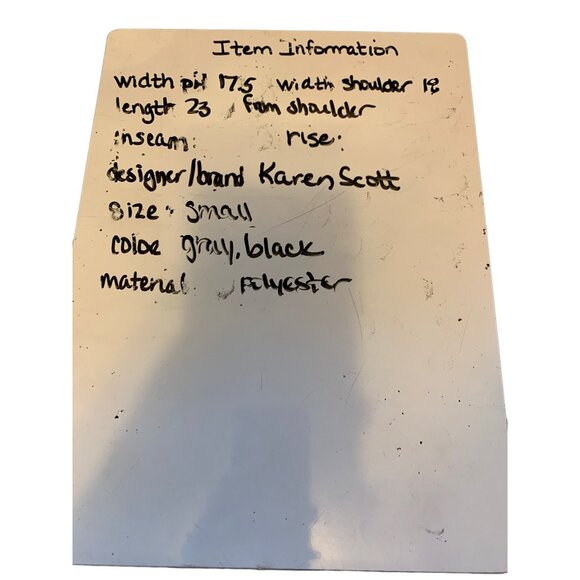 Item Information
width pit 17.5 width shoulder 18
length 23 from shoulder
inseam: rise:
designer/brand Karen Scott
size: small
color gray, black
material polyester